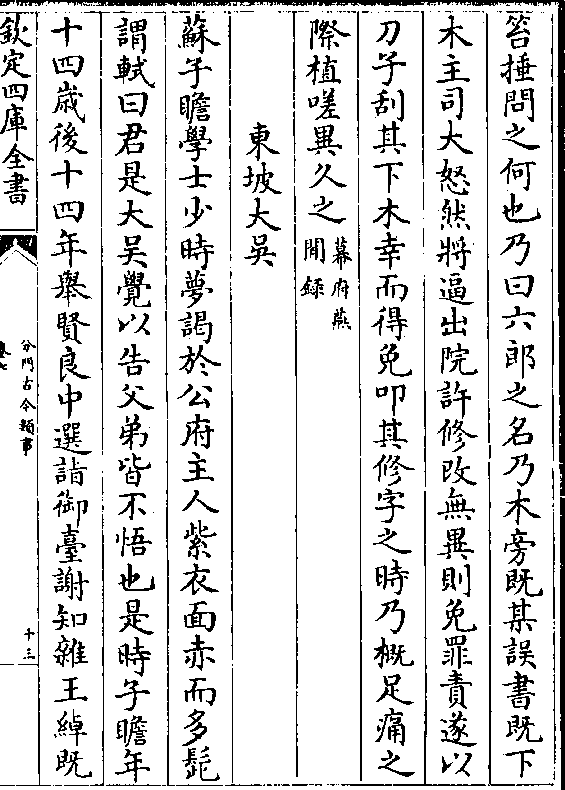 笞捶問之何也乃曰六郎之名乃木旁既某誤書既下
木主司大怒然將逼出院許修改無異則免罪責遂以
刀子刮其下木幸而得免叩其修字之時乃概足痛之
際植嗟異久之幕府燕閒錄
東坡大吴
蘇子瞻學士少時夢謁於公府主人紫衣面赤而多髭
謂軾曰君是大吴覺以告父弟皆不悟也是時子瞻年
十四歲後十四年舉賢良中選詣御臺謝知雜王綽既
欽定四庫全書
分門古今類事
十三